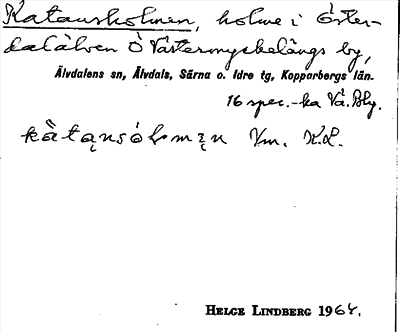 Katausholmen, holme i Öster-
dalälven Ö Västermyckelängs by,
Älvdalens sn, Älvdals, Särna o. Idre tg, Kopparbergs län.
16 spec.-ka Vä. Bly.
Vm. K.L.
HELGE LINDBERG 1964.